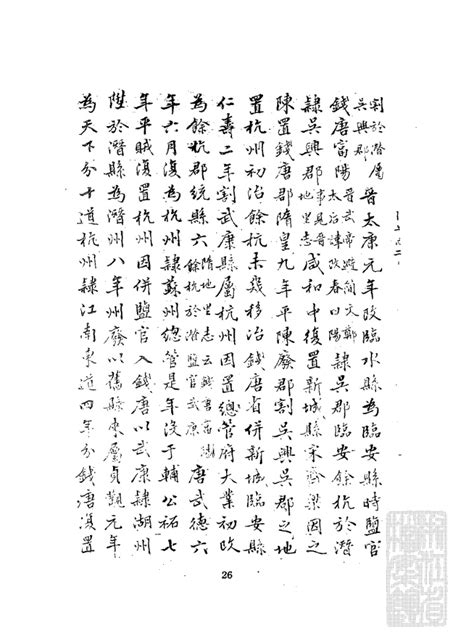 割於潛屬吳興郡晉太康元年改臨水縣為臨安縣時鹽官
錢唐富陽晉武帝避簡文鄭太后諱改春曰陽隸吳郡臨安餘杭於潛
隸吳興郡事見晉地里志咸和中復置新城縣宋齊梁因之
陳置錢唐郡隋皇九年平陳廢郡割吳興吳郡之地
置杭州初治餘杭未幾移治錢唐省併新城臨安縣
仁壽二年割武康縣屬杭州因置總管府大業初改
為餘杭郡統縣六隋地里志云錢唐富陽餘杭於潛鹽官武康唐武德六
年六月復為杭州隸蘇州總管是年沒于輔公祏七
年平賊復置杭州因併鹽官入錢唐以武康隸湖州
陞於潛縣為潛州八年州廢以舊縣來屬貞觀元年
為天下分十道杭州隸江南東道四年分錢唐復置
26